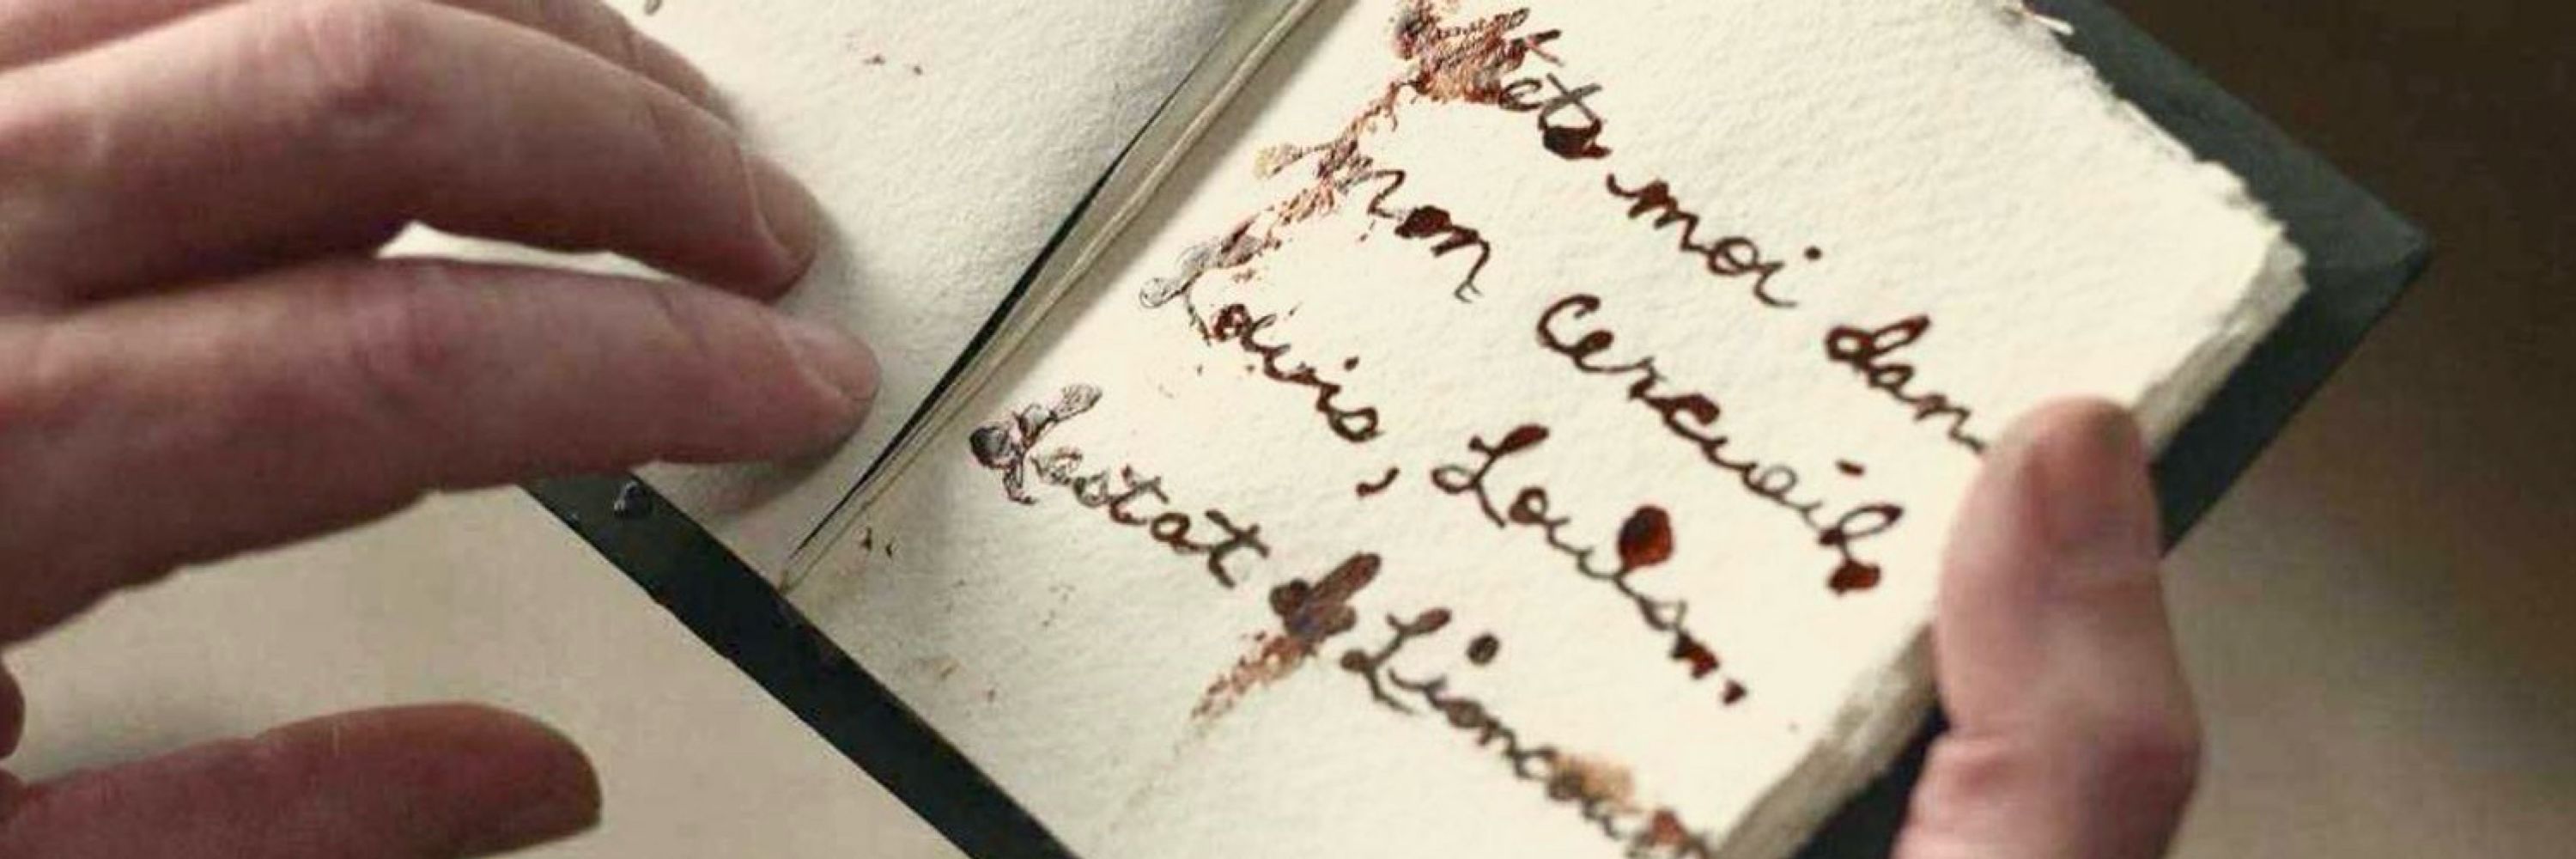 Mets moi dans
mon cercueil,
Louis, Louis...
Lestat d Lioncourt